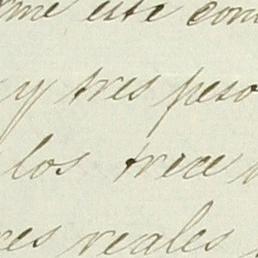 rme este con
y tres peso
los trece
res reales